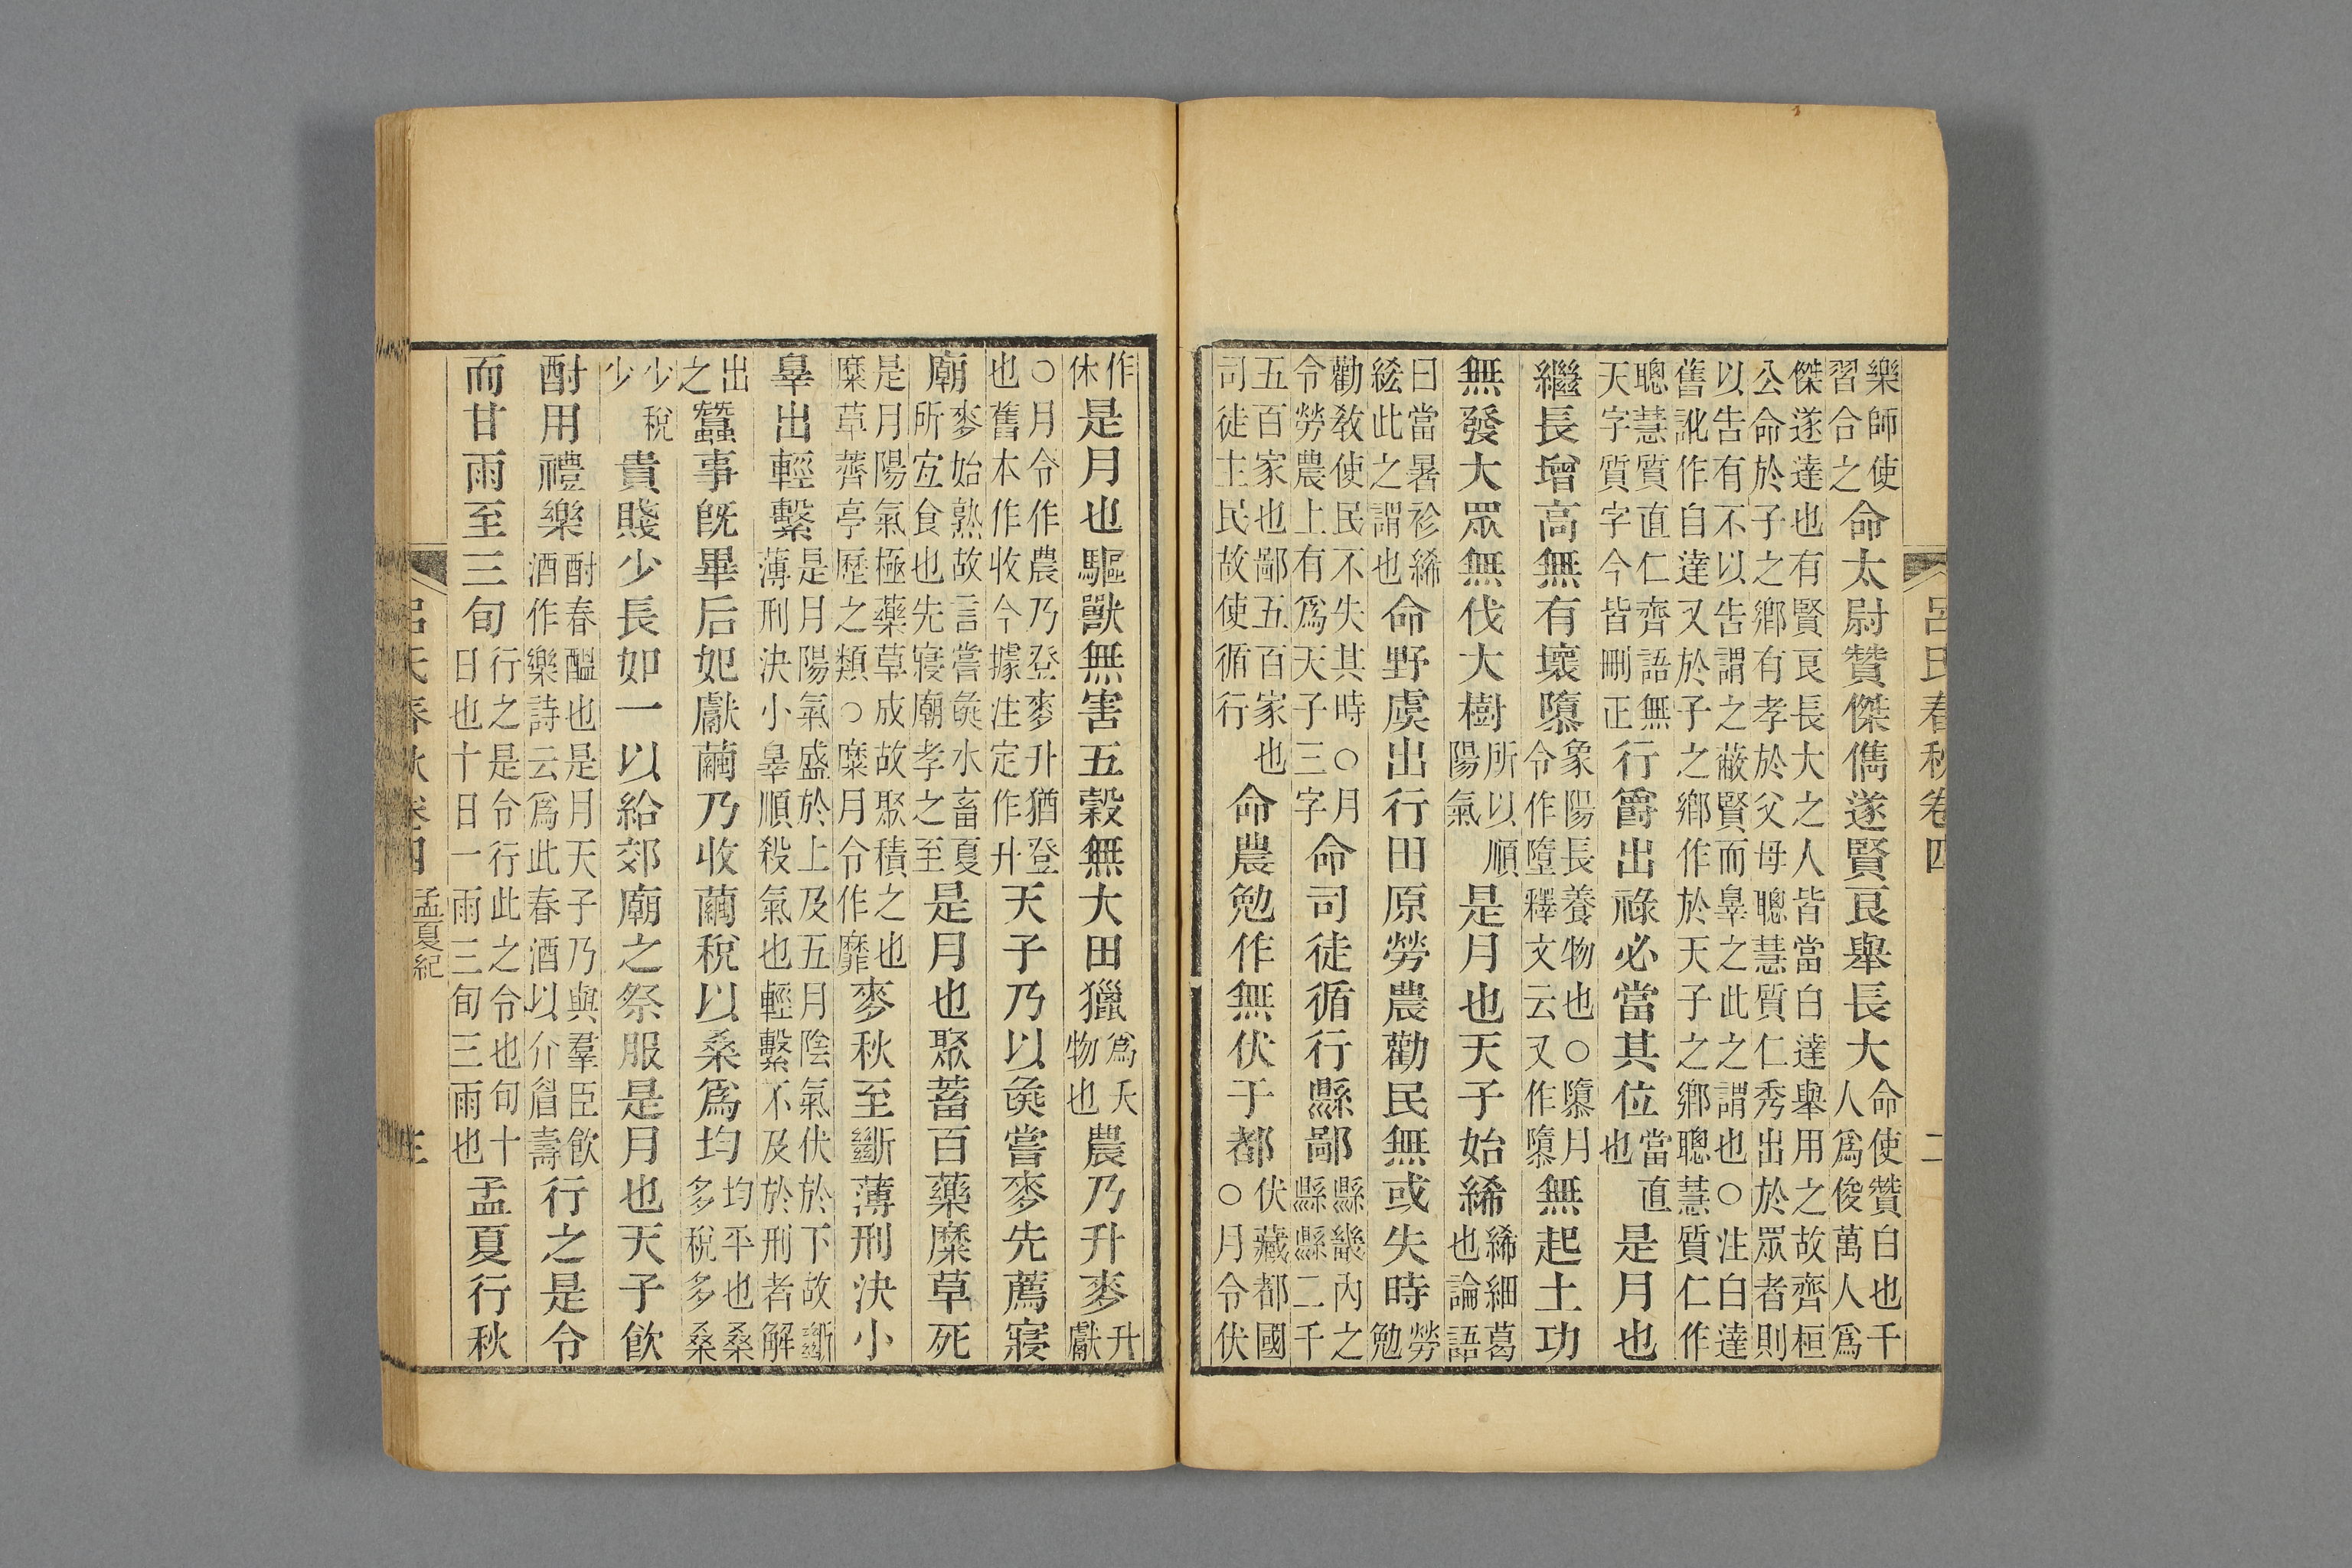 呂氏春秋卷四 二
樂師使習合之命太尉贊傑儁遂賢良舉長大命使贊白也千人爲俊萬人爲
傑遂達也有賢良長大之人皆當白達舉用之故齊桓公命於子之鄉有孝於父母聰慧質仁秀出於眾者則
以告有不以告謂之蔽賢而辠之此之謂也○注白達舊訛作自達又於子之鄉作於天子之鄉聰慧質仁作
聰慧質直仁齊語無天字質字今皆刪正行爵出祿必當其位當直也是月也
繼長增高無有壞隳象陽長養物也○隳月令作墮釋文云又作隳無起土功
無發大眾無伐大樹所以順陽氣是月也天子始絺絺細葛也論語
曰當暑袗絺綌此之謂也命野虞出行田原勞農勸民無或失時勞勉
勸教使民不失其時○月令勞農上有爲天子三字命司徒循行縣鄙縣畿內之縣縣二千
五百家也鄙五百家也司徒主民故使循行命農勉作無伏于都伏藏都國○月令伏
作休是月也驅獸無害五穀無大田獵爲夭物也農乃升麥升獻
○月令作農乃登麥升猶登也舊本作作收今據注定作升天子乃以彘嘗麥先薦寢
廟麥始熟故言嘗彘水畜夏所宜食也先寢廟孝之至是月也聚蓄百藥糜草死
是月陽氣極藥草成故聚積之也糜草薺亭歷之類○糜月令作靡麥秋至斷薄刑決小
辠出輕繫是月陽氣盛於上及五月陰氣伏於下故斷薄刑決小辠順殺氣也輕繫不及於刑者解
出之蠶事旣畢后妃獻繭乃收繭稅以桑爲均均平也桑多稅多桑
少稅少貴賤少長如一以給郊廟之祭服是月也天子飲
酎用禮樂酎春醞也是月天子乃與羣臣飲酒作樂詩云爲此春酒以介眉壽行之是令
而甘雨至三旬行之是令行此之令也旬十日也十日一雨三旬三雨也孟夏行秋
呂氏春秋卷四 孟夏紀